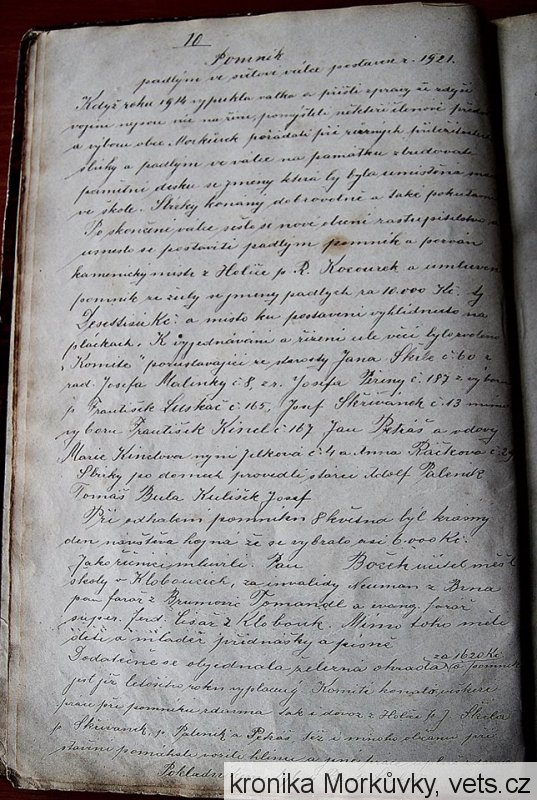 10
Pomník
padlým ve světové válce postaven r. 1921.
Když roku 1914 vypukla válka a přišli zprávy že zdejší
vojíni nejsou více na živu, pomýšleli někteří členové před
a výboru obce Morkůvek pořádati při různých příležitostech
sbírky a padlým ve válce na památku zbudovati
pamětní desku se jmény která by byla umístěna
ve škole. Sbírky konány dobrovolně a také
Po skončené válce sešlo se nové obecní zastupitelstvo a
usneslo se postaviti padlým pomník a pozván
kamenický mistr z Holíče p. R. Kocourek a umluven
pomník ze žuly se jmény padlých za 10.000 Kč.
Desettisíc Kč a místo ku postavení vyhlídnuto na
pláckách. K vyjednávání a řízení cele věci bylo zvoleno
"Komité" pozustavající ze starosty Jana Skřile č. 60 z
rad. Josefa Malinky č. 8, z r. Josefa Peřiny č. 187 z výboru
p. František Luskač č. 165, Josef Skřivánek č. 13 mimo
výboru František Kinel č. 167, Jan Prkáš a vdovy
Marie Kindlova nyní Jelková č. 4 a Anna Ráčková č. 29
Sbírky po domech provedli starci Adolf Páleník
Tomáš Bula Kulíšek Josef
Při odhalení pomníku 8 května byl krásný
den návštěva hojná že se vybralo asi 6000 Kč.
Jako řečníci mluvili Pan Boček učitel měšť.
školy v Kloboucích, za invalidy Neuman z Brna
pan farář z Brumovic Tomandl a evang. farář
super. ferd. Císař z Klobouk. Mimo toho měli
děti a mládež přednášky a písně
Dodatečně se objednala železná ohrada za 1620 Kč a pomník
jest již letošního roku vyplacený Komité konalo veškeré
práce při pomníku zdarma tak i dovoz z Holíče p. J. Skřila
p. Skřivanek p. Páleník a Prkáš též i mnoho občanů při
stavění pomáhalo voziti hlínu a
Pokladn
kronika Morkůvky, vets.cz